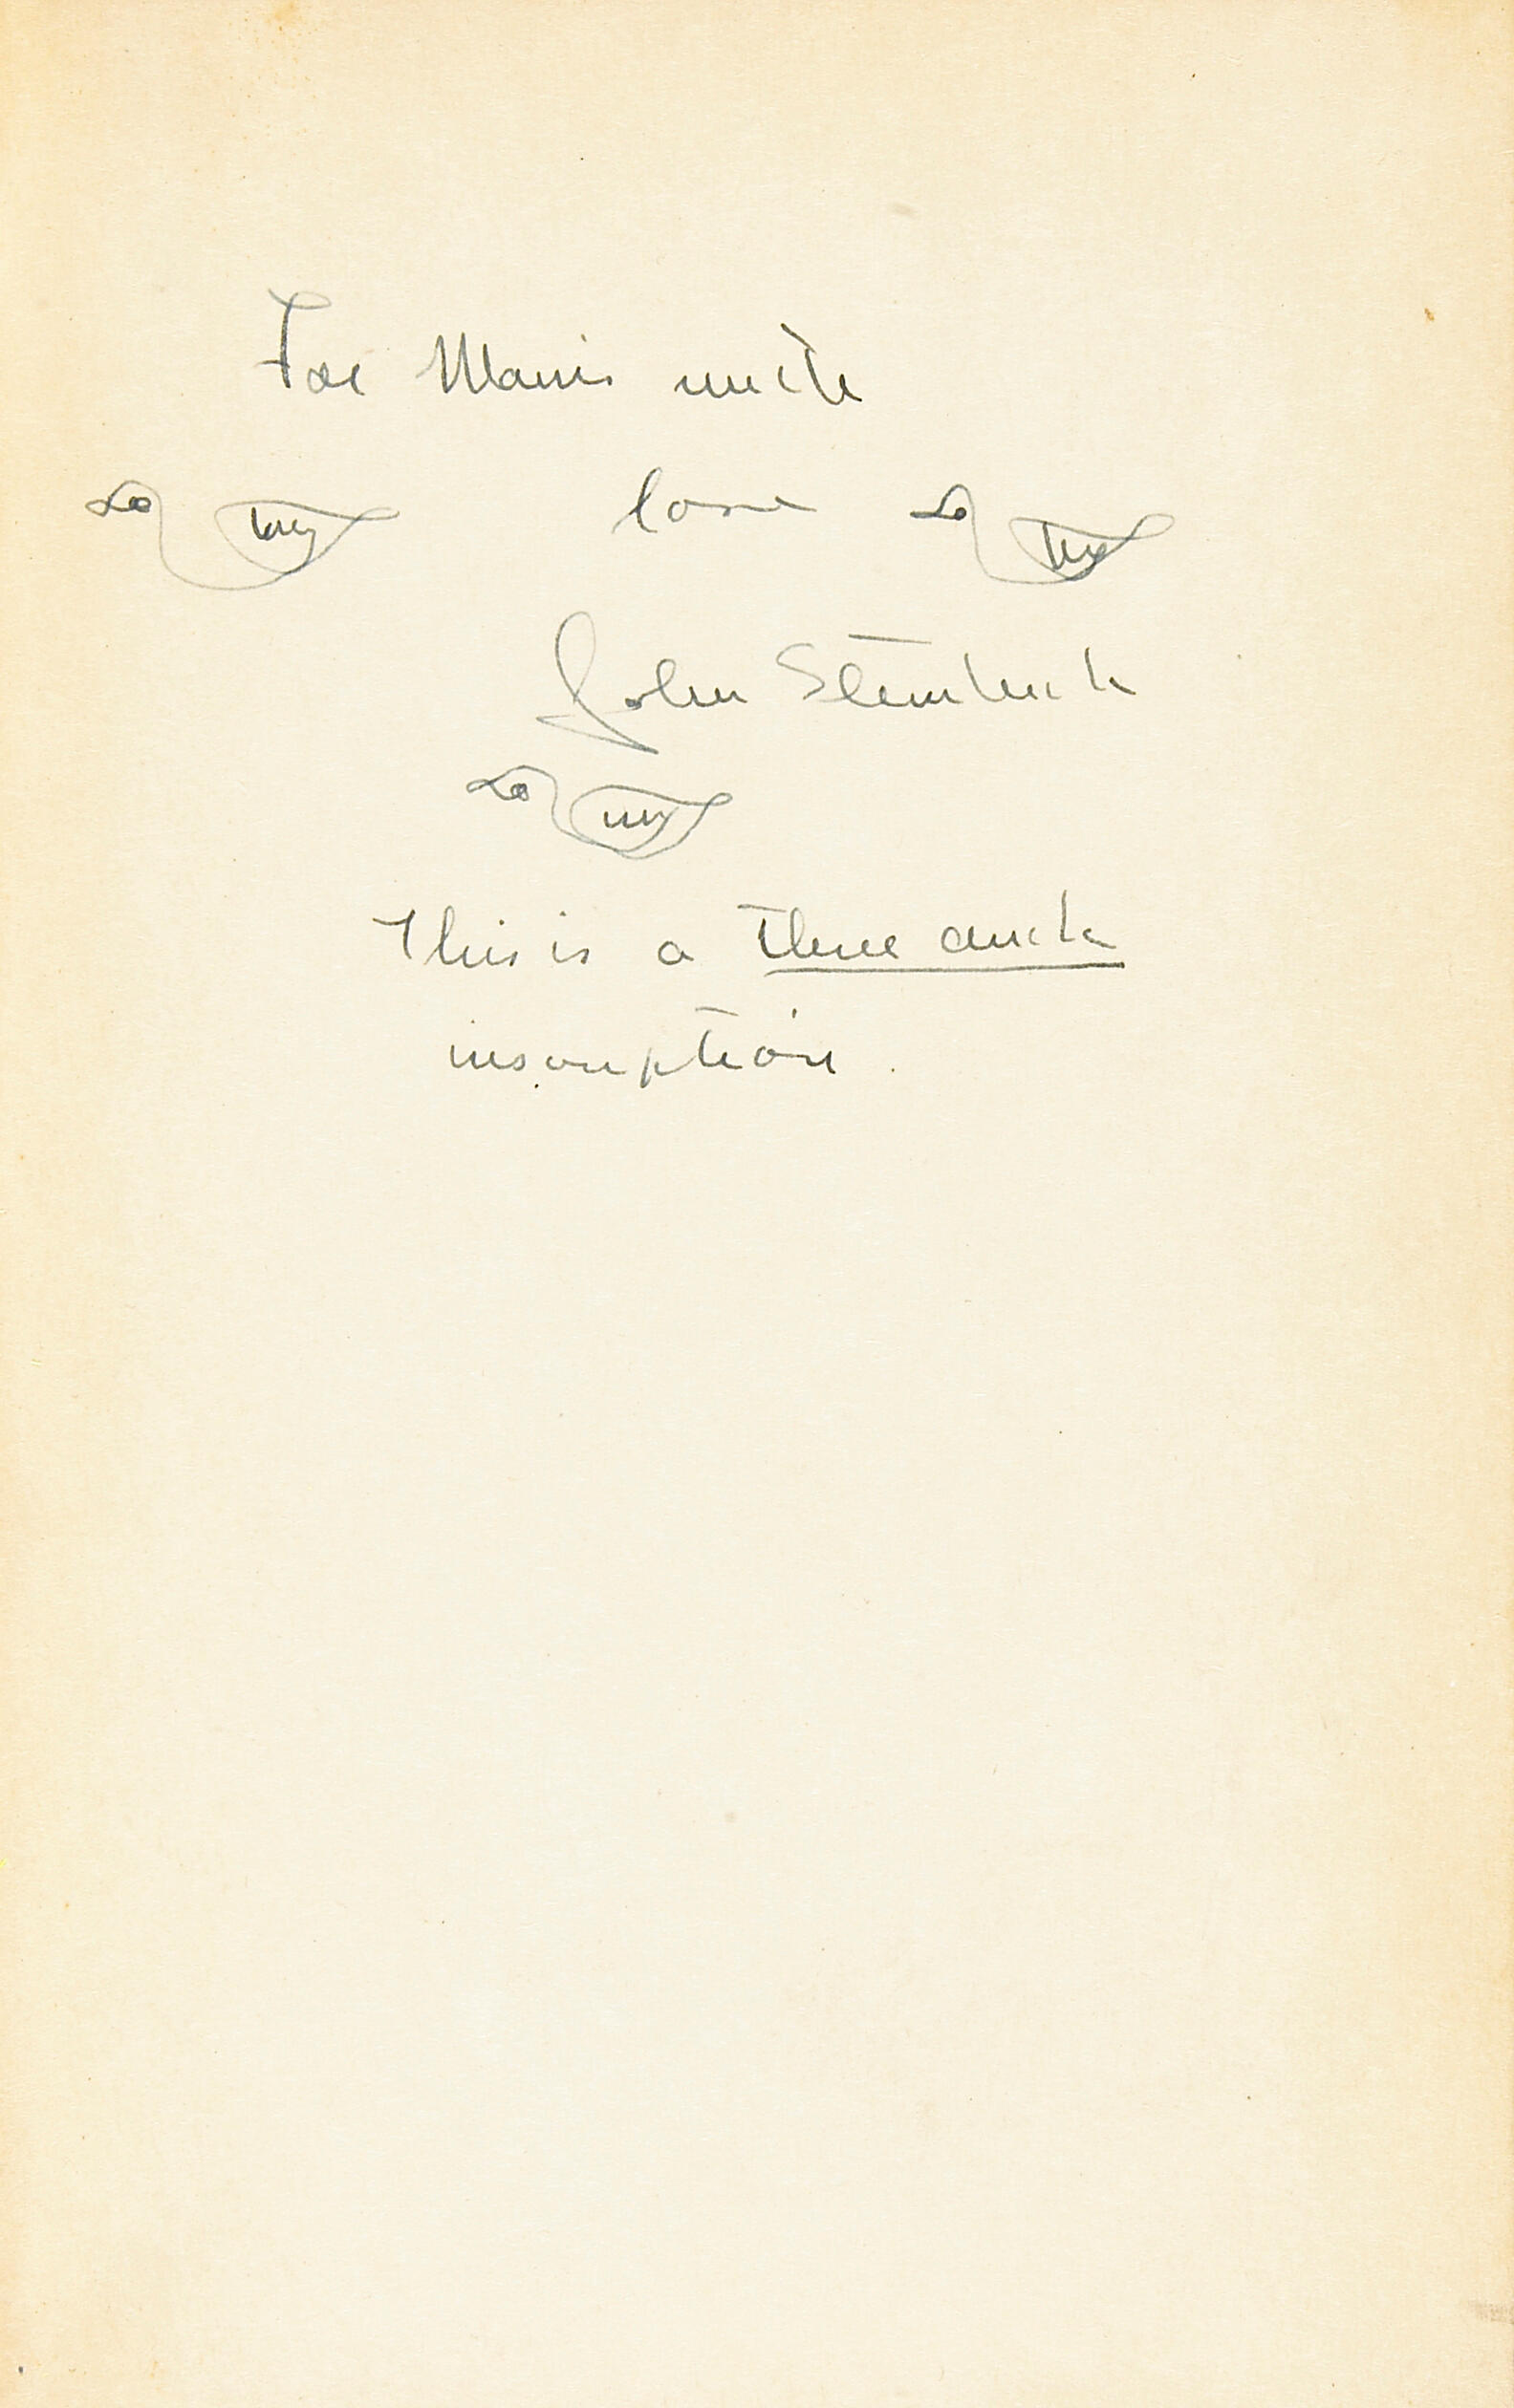 For Marie with
love
John Steinbeck
This is a three duck
inscription.